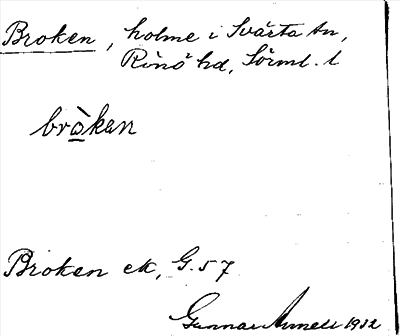 Broken, holme i Svärta sn,
Rönö hd, Sörml. l
bròkan
Broken ek, G. 57
Gunnar Arnell 1932